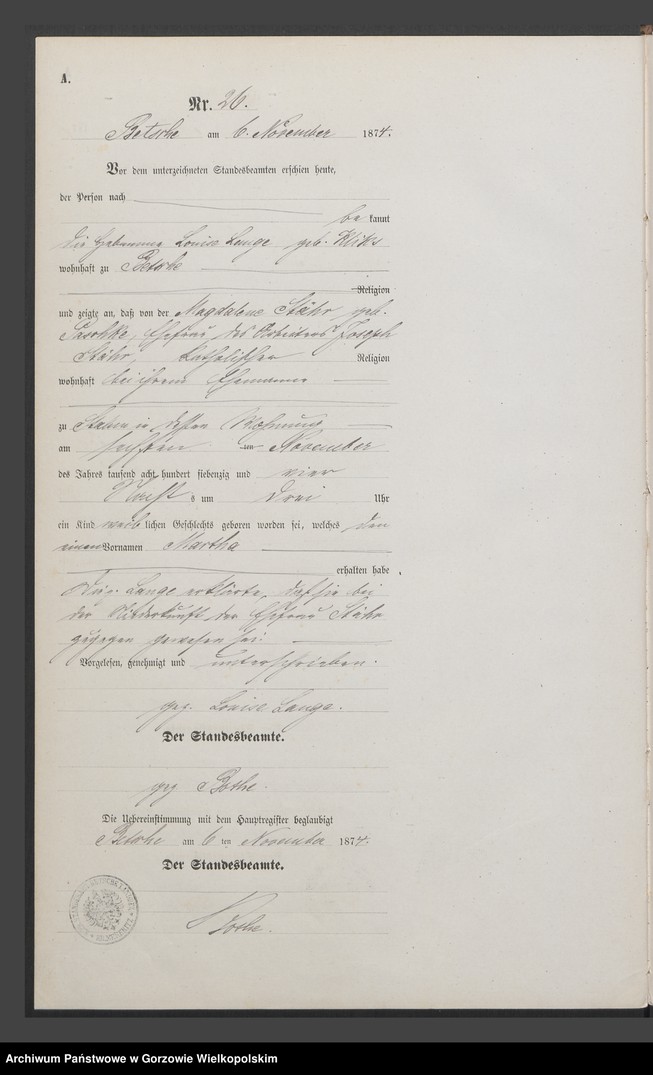 A.
Nr. 26.
Betsche am 6. November 1874.
Vor dem unterzeichneten Standesbeamten erschien heute,
der Person nach
be kannt
die Hebamme Louise Lange geb.
wohnhaft zu Betsche
Religion
und zeigte an, daß von der Magdalene Stähr geb.
Paschke, Ehefrau des Joseph
Stähr, katholischer Religion
wohnhaft bei ihrem Ehemanne
zu in dessen Wohnung
am sechsten ten November
des Jahres tausend acht hundert siebenzig und vier
Nachts um drei Uhr
ein Kind weib lichen Geschlechts geboren worden sei, welches den
einen Vornamen Martha
erhalten habe
Die p. Lange erklärte, daß sie bei
der Niederkunft der Ehefrau Stähr
zugegen gewesen sei.
Vorgelesen, genehmigt und unterschrieben.
gez. Louise Lange.
Der Standesbeamte.
gez Bothe.
Die Uebereinstimmung mit dem Hauptregister beglaubigt
Betsche am 6 ten November 1874.
Der Standesbeamte.
Bothe.
Archiwum Państwowe w Gorzowie Wielkopolskim